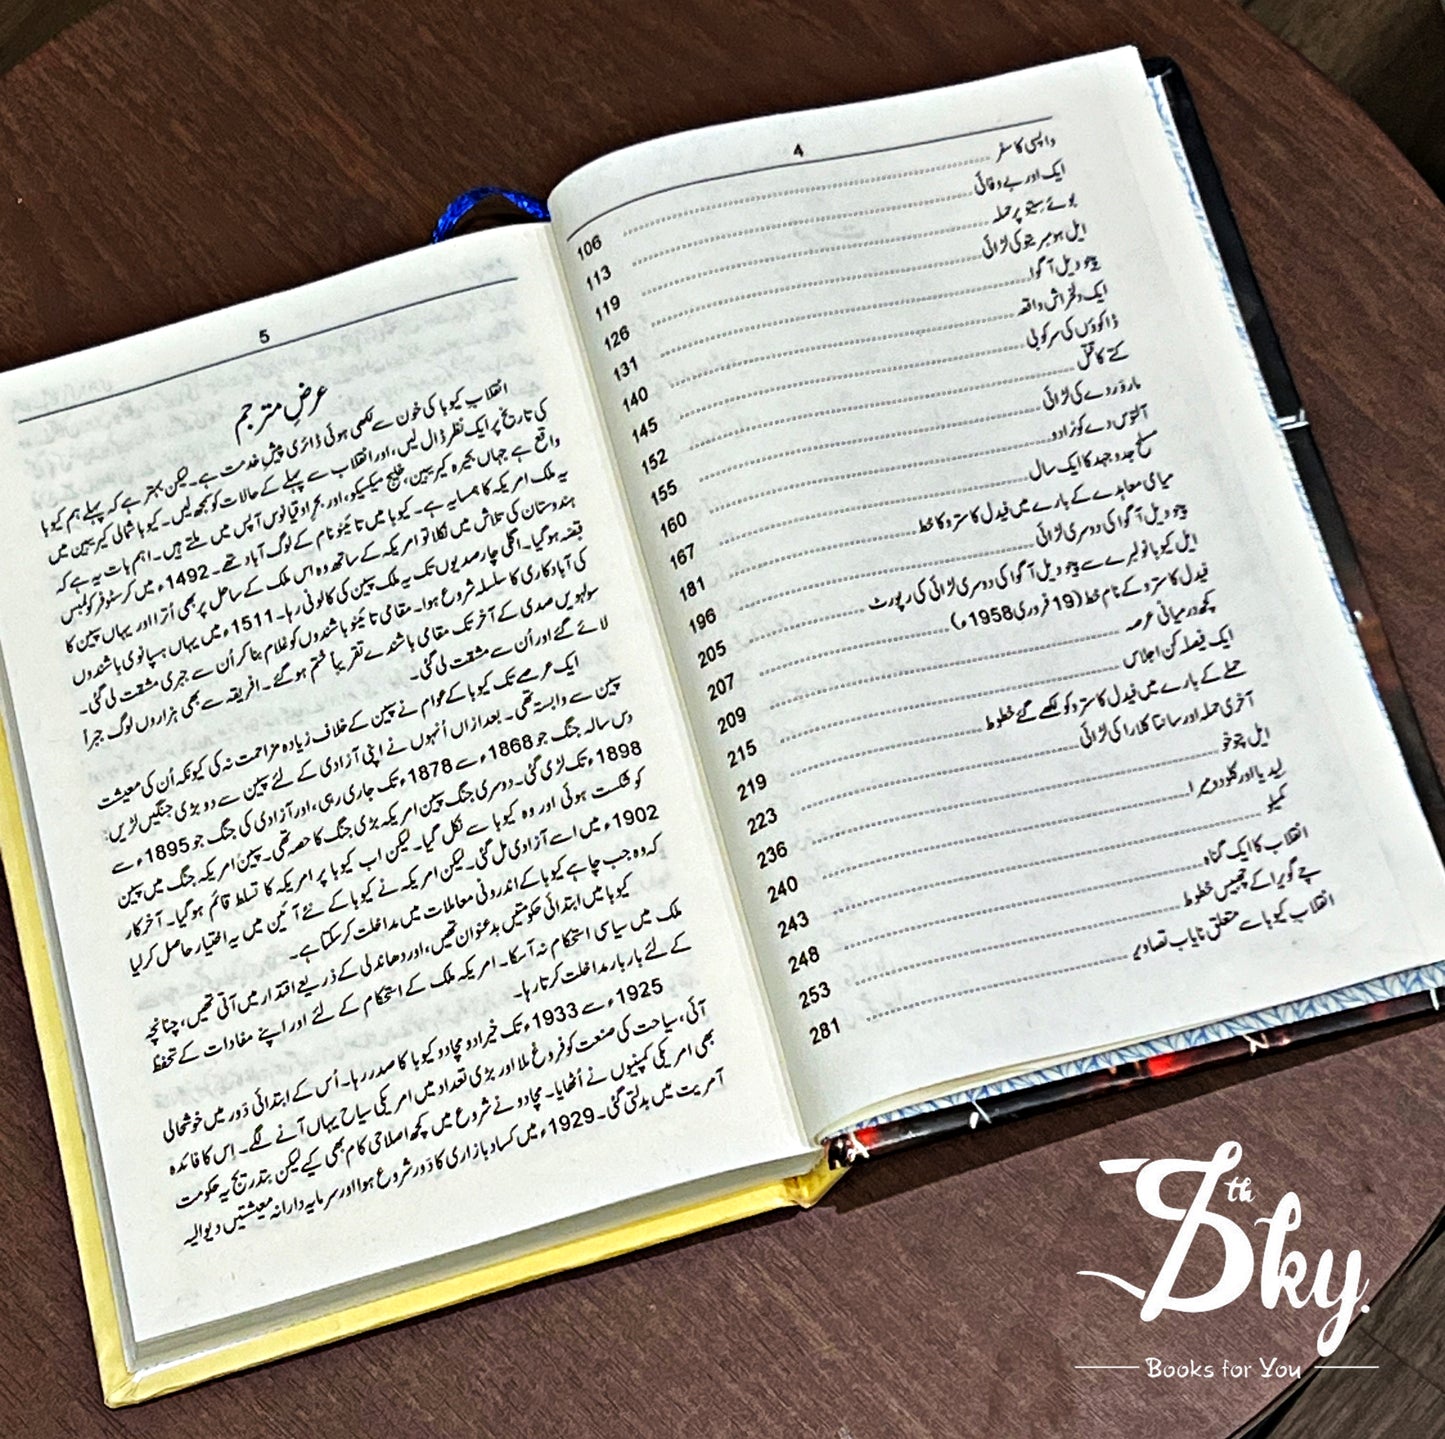 4
واپسی کا سفر 106
ایک اور بے وفائی 113
بوئے سیتو پر حملہ 119
ایل ہومبریتو کی لڑائی 126
پینو دیل آگوا 131
ایک دلخراش واقعہ 140
ڈاکوؤں کی سرکوبی 145
کتے کا قتل 152
مار وردے کی لڑائی 155
آلتوس دے کونرادو 160
مسلح جدوجہد کا ایک سال 167
میامی معاہدے کے بارے میں فیدل کاسترو کا خط 181
پینو دیل آگوا کی دوسری لڑائی 196
ایل کیوبانو لبرے سے پینو دیل آگوا کی دوسری لڑائی کی رپورٹ 205
فیدل کاسترو کے نام خط (19 فروری 1958ء) 207
کچھ درمیانی عرصہ 209
ایک فیصلہ کن اجلاس 215
حملے کے بارے میں فیدل کاسترو کو لکھے گئے خطوط 219
آخری حملہ اور سانتا کلارا کی لڑائی 223
ایل چوخو 236
لیدیا اور کلودومیرا 240
243
انقلاب کا ایک گناہ 248
چے گویرا کے چھبیس خطوط 253
انقلاب کیوبا سے متعلق نایاب تصاویر 281
5
عرضِ مترجم
انقلابِ کیوبا کی خون سے لکھی ہوئی ڈائری پیشِ خدمت ہے۔ لیکن بہتر ہے کہ پہلے ہم کیوبا
کی تاریخ پر ایک نظر ڈال لیں، اور انقلاب سے پہلے کے حالات کو سمجھ لیں۔ کیوبا شمالی کیریبین میں
واقع ہے جہاں بحیرہ کیریبین، خلیج میکسیکو، اور بحرِ اوقیانوس آپس میں ملتے ہیں۔ اہم بات یہ ہے کہ
یہ ملک امریکہ کا ہمسایہ ہے۔ کیوبا میں تائینو نام کے لوگ آباد تھے۔ 1492ء میں کرسٹوفر کولمبس
ہندوستان کی تلاش میں نکلا تو امریکہ کے ساتھ وہ اس ملک کے ساحل پر بھی اُترا اور یہاں سپین کا
قبضہ ہو گیا۔ اگلی چار صدیوں تک یہ ملک سپین کی کالونی رہا۔ 1511ء میں یہاں ہسپانوی باشندوں
کی آباد کاری کا سلسلہ شروع ہوا۔ مقامی تائینو باشندوں کو غلام بنا کر اُن سے جبری مشقت لی گئی۔
سولہویں صدی کے آخر تک مقامی باشندے تقریباً ختم ہو گئے۔ افریقہ سے بھی ہزاروں لوگ جبراً
لائے گئے اور اُن سے مشقت لی گئی۔
ایک عرصے تک کیوبا کے عوام نے سپین کے خلاف زیادہ مزاحمت نہ کی کیونکہ اُن کی معیشت
سپین سے وابستہ تھی۔ بعد ازاں اُنہوں نے اپنی آزادی کے لئے سپین سے دو بڑی جنگیں لڑیں:
دس سالہ جنگ جو 1868ء سے 1878ء تک جاری رہی، اور آزادی کی جنگ جو 1895ء سے
1898ء تک لڑی گئی۔ دوسری جنگ سپین امریکہ بڑی جنگ کا حصہ تھی۔ سپین امریکہ جنگ میں سپین
کو شکست ہوئی اور وہ کیوبا سے نکل گیا۔ لیکن اب کیوبا پر امریکہ کا تسلط قائم ہو گیا۔ آخر کار
1902ء میں اسے آزادی مل گئی۔ لیکن امریکہ نے کیوبا کے نئے آئین میں یہ اختیار حاصل کر لیا
کہ وہ جب چاہے کیوبا کے اندرونی معاملات میں مداخلت کر سکتا ہے۔
کیوبا میں ابتدائی حکومتیں بدعنوان تھیں، اور دھاندلی کے ذریعے اقتدار میں آتی تھیں، چنانچہ
ملک میں سیاسی استحکام نہ آ سکا۔ امریکہ ملک کے استحکام کے لئے اور اپنے مفادات کے تحفظ
کے لئے بار بار مداخلت کرتا رہا۔
1925ء سے 1933ء تک خیرادو مچادو کیوبا کا صدر رہا۔ اُس کے ابتدائی دَور میں خوشحالی
آئی، سیاحت کی صنعت کو فروغ ملا اور بڑی تعداد میں امریکی سیاح یہاں آنے لگے۔ اِس کا فائدہ
بھی امریکی کمپنیوں نے اُٹھایا۔ مچادو نے شروع میں کچھ اصلاحی کام بھی کیے لیکن بتدریج یہ حکومت
آمریت میں بدلتی گئی۔ 1929ء میں کساد بازاری کا دَور شروع ہوا اور سرمایہ دارانہ معیشتیں دیوالیہ
7th Sky.
Books for You